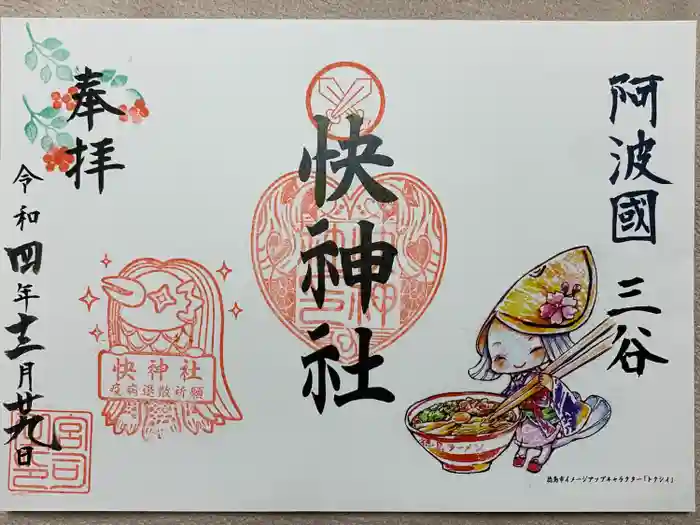 阿波國 三谷
快神社
奉拝
令和四年十二月廿九日
快神社
疫病退散祈願
宮司
徳島ラーメン
徳島市イメージアップキャラクター「トクシイ」